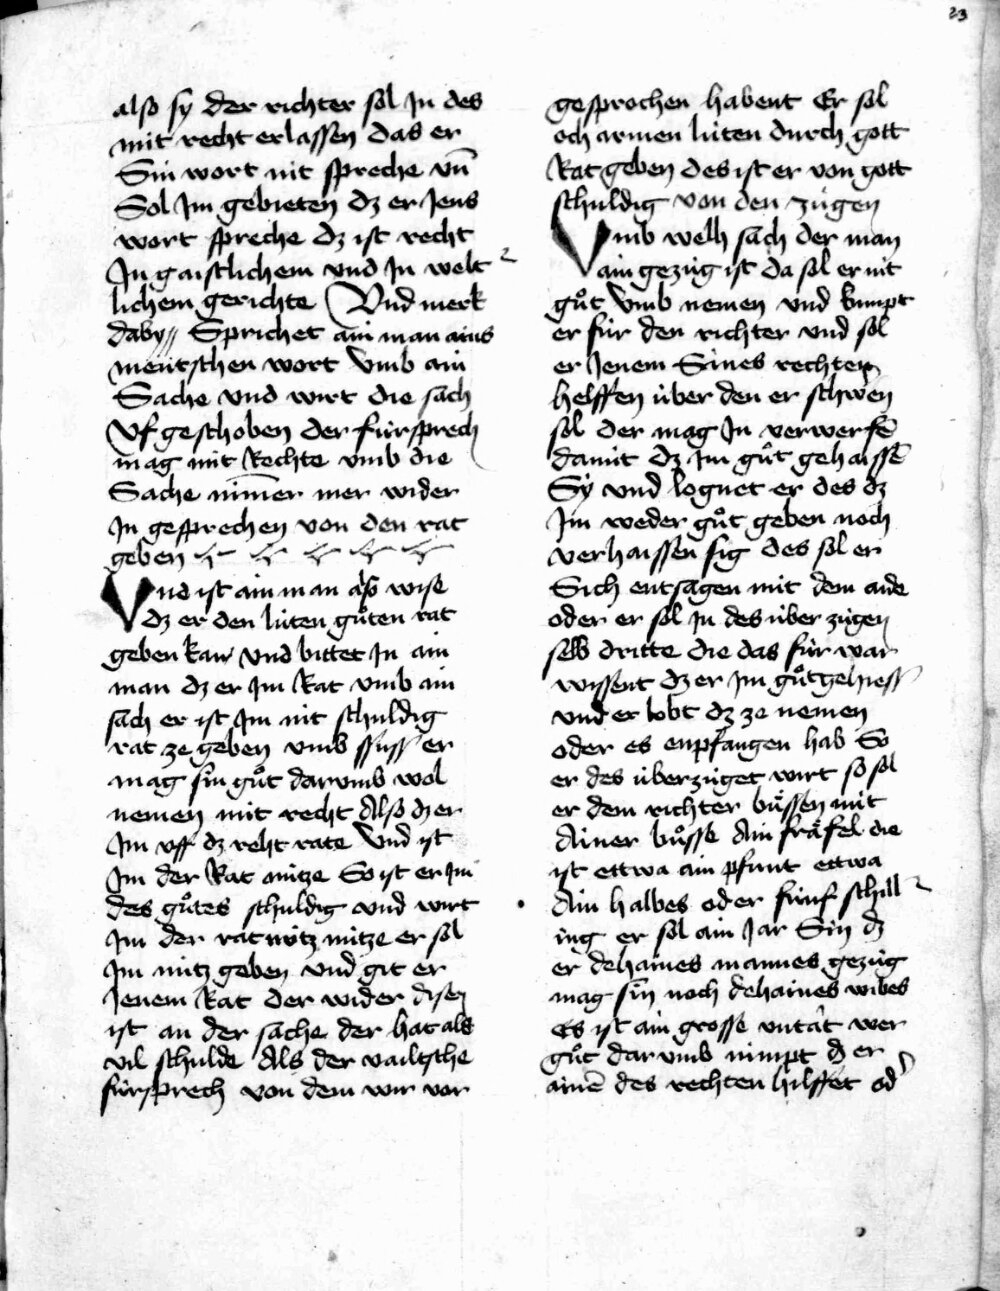 23
also sy der richter sol In des
mit recht erlassen das er
Sin wort nit spreche vn̄
Sol Im gebieten dz er Jens
wort spreche dz ist recht
In gaistlichem vnd In welt
lichem gerichte Vnd merk
daby // Sprichet ain man ains
mentschen wort Vmb ain
Sache vnd wirt die sach
Vf geschoben der fürsprech
mag mit Rechte vmb die
Sache nim̄er mer wider
In gesprechen von den rat
geben
Vnd ist ain man also wise
dz er den lüten gůten rat
geben kan vnd bittet In ain
man dz er Im Rat vmb ain
sach er ist Im nit schuldig
rat ze geben vmb suss er
mag sin gůt darumb wol
nemen mit recht Also dz er
Im vff dz reht rate Vnd ist
Im der Rat nütze So ist er Im
des gůtes schuldig vnd wirt
Im der rat nütze er sol
Im nütz geben vnd git er
Jenem Rat der wider disen
ist an der sache der hat als
vil schulde Als der vailtsche
fürsprech von dem wir vor
gesprochen habent Er sol
och armen lüten durch gott
Rat geben des ist er von gott
schuldig von den zügen
Vmb welh sach der man
ain gezüg ist da sol er nit
gůt Vmb nemen vnd kumpt
er für den richter vnd sol
er Jenem Sines rechten
helffen über den er schwēn
sol der mag In verwerfē
damit dz Im gůt gehaissē
Sy vnd lognet er des dz
Im weder gůt geben noch
verhaissen sig des sol er
Sich entsagen mit dem aide
oder er sol In des über zügen
selb dritte die das für war
wissent dz er Im gůt gehiess
vnd er lobt dz ze nemen
oder es enpfangen hab So
er des überzüget wirt so sol
er dem richter bůssen mit
Ainer bůsse Ain fräfel die
ist ettwa ain pfunt ettwa
Ain halbes oder fünf schill
ing er sol ain Jar Sin dz
er dehaines mannes gezüg
mag sin noch dehaines wibes
Es ist ain grosse vntat wer
gůt darumb nimpt dz er
ainē des rechten hilffet od'